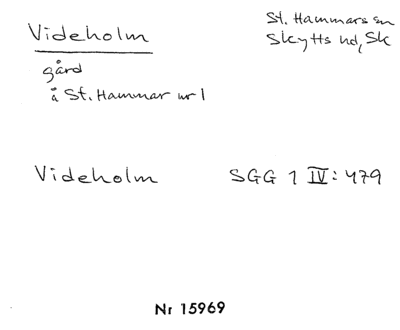 Videholm
St. Hammars sn
Skytts hd, Sk
gård
å St. Hammar nr 1
Videholm SGG 1 IV: 479
Nr 15969